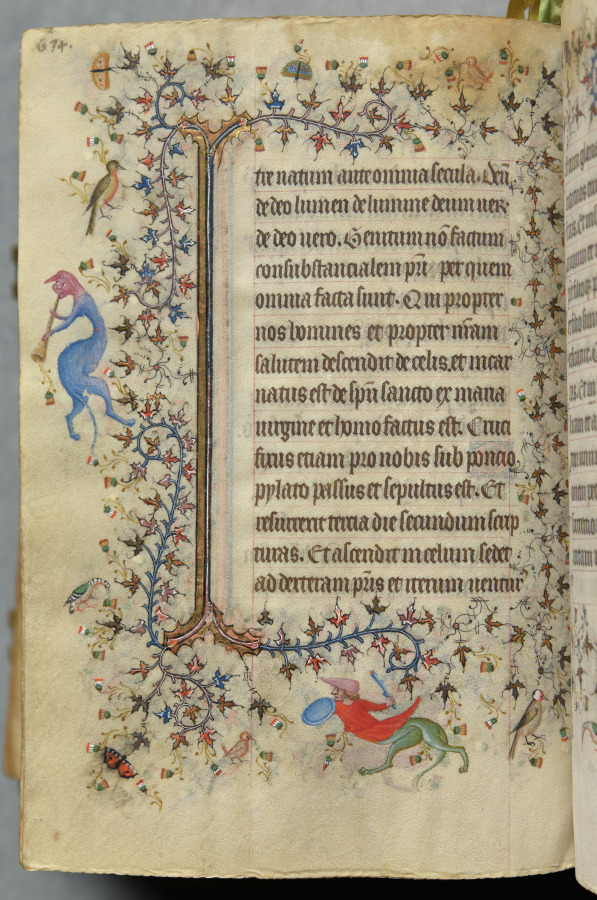 674.
tre natum ante omnia secula. Deū
de deo lumen de lumine deum ver
de deo vero. Genitum nō factum
consubstancialem pr̄i per quem
omnia facta sunt. Qui propter
nos homines et propter nr̄am
salutem descendit de celis et incar
natus est de spū sancto ex maria
uirgine et homo factus est. Cruci
fixus etiam pro nobis sub poncio
pylato passus et sepultus est. Et
resurrexit tercia die secundum scrip
turas. Et ascendit in celum sedet
ad dexteram pr̄is et iterum uentur